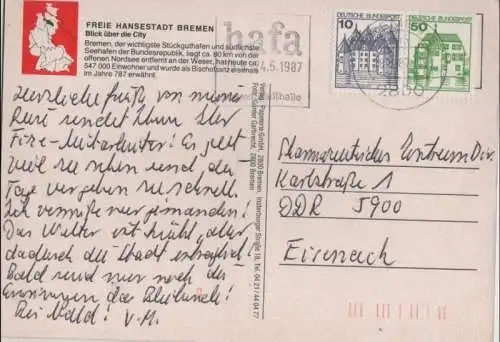 FREIE HANSESTADT BREMEN
Blick über die City
Bremen, der wichtigste Stückguthafen und südlichste
Seehafen der Bundesrepublik, liegt ca. 80 km von der
offenen Nordsee entfernt an der Weser, hat heute ca.
547 000 Einwohner und wurde als Bischofssitz erstmals
im Jahre 787 erwähnt.
hafa
4.5.1987
halle
DEUTSCHE BUNDESPOST
10
DEUTSCHE BUNDESPOST
50
2800
Herzliche Grüße von meiner
Reise sendet Ihnen
Mitarbeiter! Es gibt
viel zu sehen und die
Tage vergehen zu schnell.
Ich vermisse nur jemanden!
Das Wetter ist kühl, aber
dadurch die Stadt
Bald sind nur noch die
Erinnerungen das Bleibende!
Bis bald! V.M.
Verlag: Papeterie GmbH, 2800 Bremen, Insterburger Straße 18, Tel. 04 21 / 44 04 77
Fotos: Günter Garbrecht, 2800 Bremen
Pharmazeutisches Zentrum Dir.
Karlstraße 1
DDR 5900
Eisenach